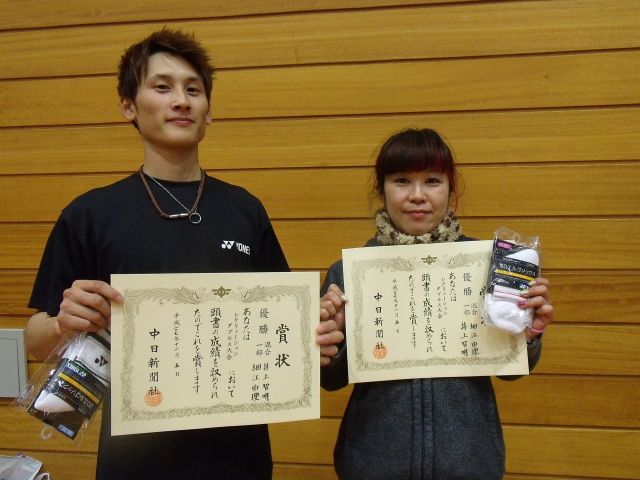 YONEX
賞状
優勝 混合一部 井上智明 細江由理
あなたは レクリエーションダブルス大会 において
頭書の成績を収められ
たのでこれを賞します
中日新聞社
優勝 混合一部 細江由理 井上智明
あなたは レクリエーションダブルス大会 において
頭書の成績を収められ
たのでこれを賞します
中日新聞社